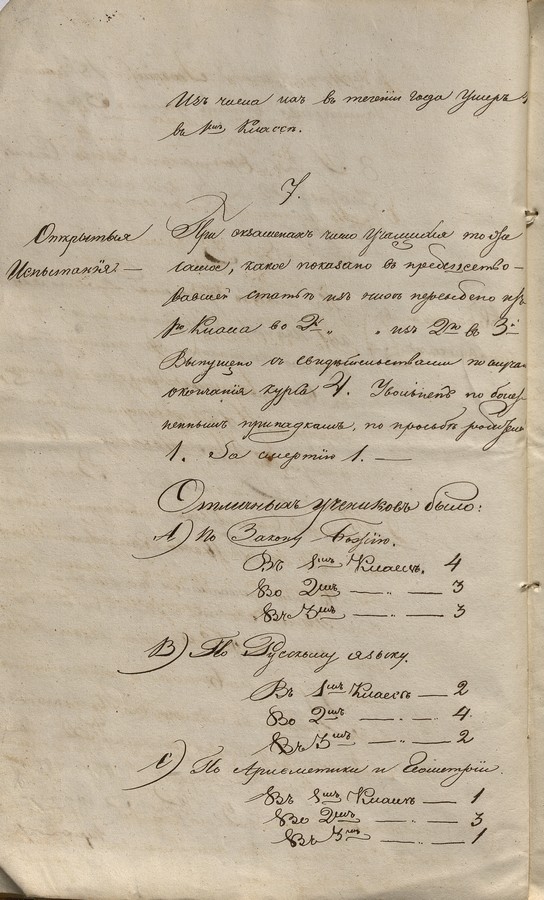 Изъ числа ихъ въ теченіи года Умеръ 1
въ 1мъ Классѣ.
7.
Открытыя
Испытанія. —
При экзаменахъ число Учащихся тоже
самое, какое показано въ предшество-
вавшей статьѣ изъ нихъ переведено изъ
1го Класса во 2й „ „ изъ 2го въ 3й
Выпущено съ свидѣтельствами по случаю
окончанія курса 4. Уволенъ по болез-
неннымъ припадкамъ, по просьбѣ родителей
1. За смертію 1. —
Отличныхъ учениковъ было:
А) По Закону Божію.
Въ 1мъ Классѣ. 4
Во 2мъ — „ — 3
Въ 3мъ — „ — 3
В) По Русскому языку.
Въ 1мъ Классѣ — 2
Во 2мъ — „ — 4
Въ 3мъ — „ — 2
С) По Арифметики и Геометріи.
Въ 1мъ Классѣ — 1
Во 2мъ — „ — 3
Въ 3мъ — „ — 1